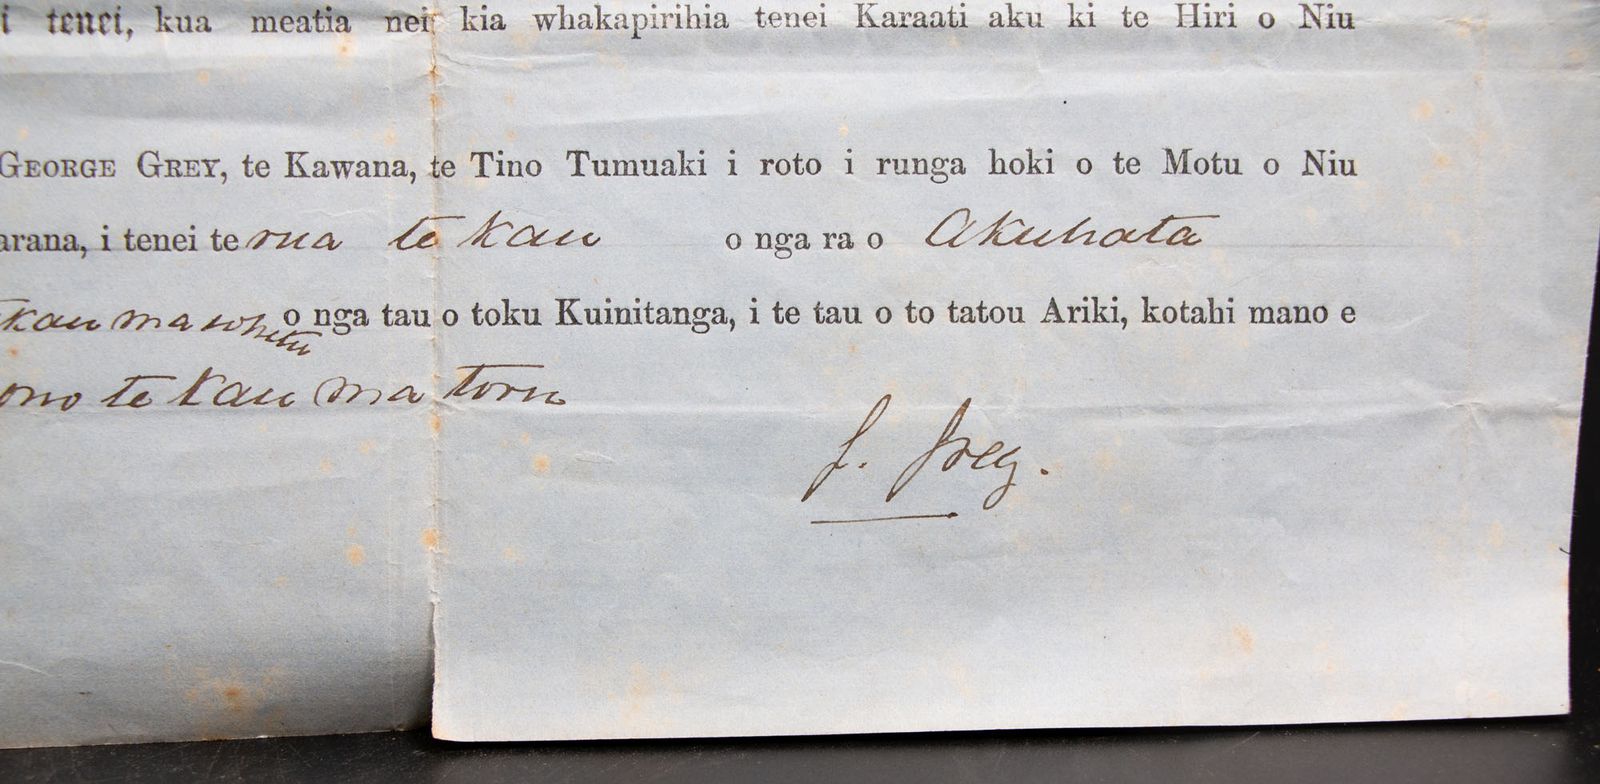 i tenei, kua meatia nei kia whakapirihia tenei Karaati aku ki te Hiri o Niu
GEORGE GREY, te Kawana, te Tino Tumuaki i roto i runga hoki o te Motu o Niu
arana, i tenei te rua te kau o nga ra o Akuhata
kau ma whitu o nga tau o toku Kuinitanga, i te tau o to tatou Ariki, kotahi mano e
ono te kau ma toru
G. Grey.